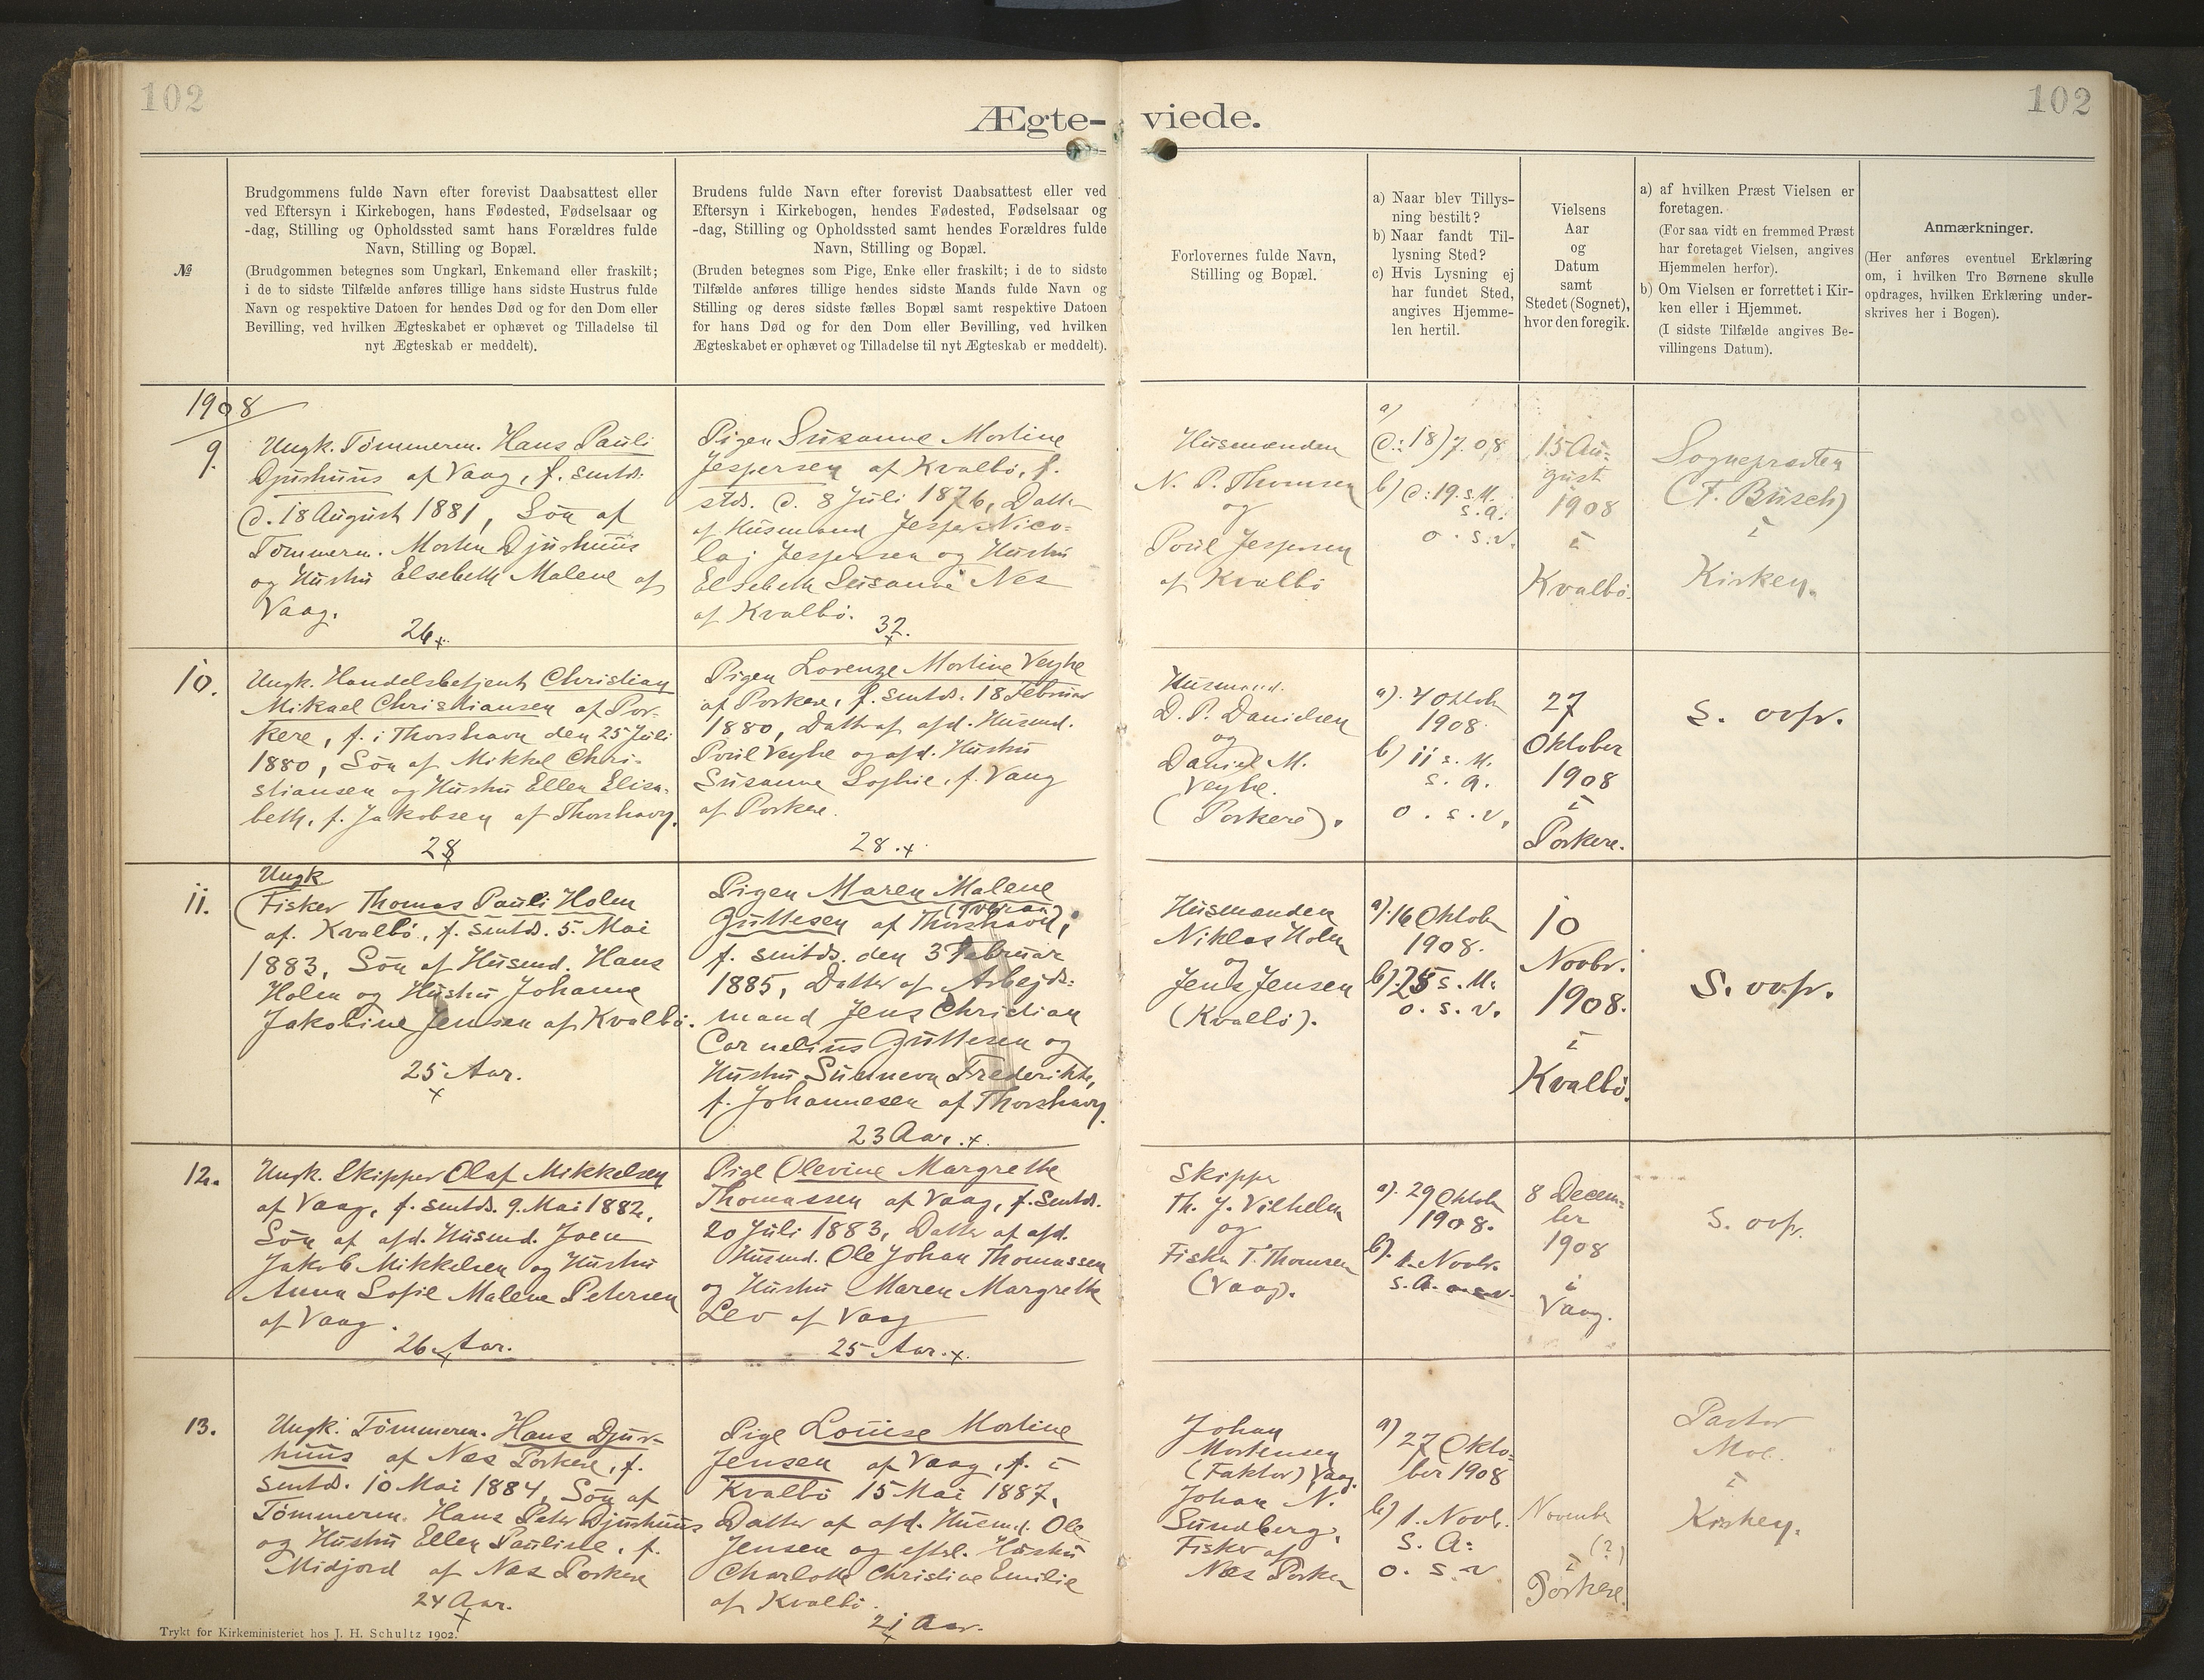 102
102
Ægte-
viede.
№
Brudgommens fulde Navn efter forevist Daabsattest eller
ved Eftersyn i Kirkebogen, hans Fødested, Fødselsaar og
-dag, Stilling og Opholdssted samt hans Forældres fulde
Navn, Stilling og Bopæl.
(Brudgommen betegnes som Ungkarl, Enkemand eller fraskilt;
i de to sidste Tilfælde anføres tillige hans sidste Hustrus fulde
Navn og respektive Datoen for hendes Død og for den Dom eller
Bevilling, ved hvilken Ægteskabet er ophævet og Tilladelse til
nyt Ægteskab er meddelt).
Brudens fulde Navn efter forevist Daabsattest eller ved
Eftersyn i Kirkebogen, hendes Fødested, Fødselsaar og
-dag, Stilling og Opholdssted samt hendes Forældres fulde
Navn, Stilling og Bopæl.
(Bruden betegnes som Pige, Enke eller fraskilt; i de to sidste
Tilfælde anføres tillige hendes sidste Mands fulde Navn og
Stilling og deres sidste fælles Bopæl samt respektive Datoen
for hans Død og for den Dom eller Bevilling, ved hvilken
Ægteskabet er ophævet og Tilladelse til nyt Ægteskab er meddelt).
Forlovernes fulde Navn,
Stilling og Bopæl.
a) Naar blev Tillys-
ning bestilt?
b) Naar fandt Til-
lysning Sted?
c) Hvis Lysning ej
har fundet Sted,
angives Hjemme-
len hertil.
Vielsens
Aar
og
Datum
samt
Stedet (Sognet),
hvor den foregik.
a) af hvilken Præst Vielsen er
foretagen.
(For saa vidt en fremmed Præst
har foretaget Vielsen, angives
Hjemmelen herfor).
b) Om Vielsen er forrettet i Kir-
ken eller i Hjemmet.
(I sidste Tilfælde angives Be-
villingens Datum).
Anmærkninger.
(Her anføres eventuel Erklæring
om, i hvilken Tro Børnene skulle
opdrages, hvilken Erklæring under-
skrives her i Bogen).
1908
9.
Ungk. Tømmerm. Hans Pauli
Djurhuus af Vaag, f. smtds.
d. 18 August 1881, Søn af
Tømmerm. Morten Djurhuus
og Hustru Elsebeth Malene af
Vaag.
26
Pigen Susanne Mortine
Jespersen af Kvalbø, f.
stds. d. 8 Juli 1876, Datt.
af Husmand Jesper Nico-
laj Jespersen og Hustru
Elsebeth Susanne Nes
af Kvalbø.
32.
Husmænden
N. P. Thomsen
og
Poul Jespersen
af Kvalbø
a)
d: 18/7 08
b) d: 19. s. M.
s. a.
o. s. v.
15 Au-
gust
1908
i
Kvalbø.
Sognepræsten
(F. Busch)
i
Kirken.
10.
Ungk. Handelsbetjent Christian
Mikael Christiansen af Por-
kere, f. i Thorshavn den 25 Juli
1880, Søn af Mikkel Chri-
stiansen og Hustru Ellen Elisa-
beth, f. Jakobsen af Thorshavn.
28
Pigen Lorenze Mortine Veyhe
af Porkere, f. smtds. 18 Februar
1880, Datt. af afd. Husmd.
Poul Veyhe og afd. Hustru
Susanne Sophie, f. Vang
af Porkere.
28.
Husmænd.
D. P. Danielsen
og
Daniel M.
Veyhe.
(Porkere).
a). 4 Oktob
1908.
b) 11 s. M.
s. a.
o. s. v.
27
Oktober
1908
i
Porkere.
S. ovfr.
11.
Ungk
Fisker Thomas Pauli Holm
af. Kvalbø, f. smtds. 5. Mai
1883, Søn af Husmd. Hans
Holm og Hustru Johanne
Jakobine Jensen af Kvalbø.
25 Aar.
Pigen Maren Malene
Guttesen af Thorshavn,
f. smtds. den 3 Februar
1885, Datter af Arbejds-
mand Jens Christian
Cornelius Guttesen og
Hustru Sunneva Frederikke,
f. Johannesen af Thorshavn
23 Aar.
Husmænden
Niklas Holm
og
Jens Jensen
(Kvalbø).
a). 16 Oktob
1908.
b). 25 s. M.
o. s. v.
10
Novbr.
1908.
i
Kvalbø.
S. ovfr.
12.
Ungk. Skipper Olaf Mikkelsen
af Vaag, f. smtds. 9. Mai 1882,
Søn af afd. Husmd. Joen
Jakob Mikkelsen og Hustru
Anna Sofie Malene Petersen
af Vaag.
26 Aar.
Pige Olevine Margrethe
Thomassen af Vaag, f. smtds.
20 Juli 1883, Datter af afd.
Husmd. Ole Johan Thomassen
og Hustru Maren Margrethe
Lev af Vaag
25 Aar.
Skipper
Th. J. Vilhelm
og
Fisker T. Thomsen
(Vaag).
a). 29 Oktob
1908.
b). 1. Novbr.
s. A. o. s. v.
8 Decem-
ber
1908
i
Vaag.
S. ovfr.
13.
Ungk. Tømmerm. Hans Djur-
huus af Næs Porkere, f.
smtds. 10 Mai 1884, Søn af
Tømmerm. Hans Peter Djurhuus
og Hustru Ellen Pauline, f.
Midjord af Næs Porkere
24 Aar.
Pige Louise Mortine
Jensen af Vaag, f. i
Kvalbø 15 Mai 1887,
Datter af afd. Husmd. Ole
Jensen og eftrl. Hustru
Charlotte Christine Emilie
af Kvalbø.
21 Aar.
Johan
Mortensen
(Faktor) Vaag.
Johan N.
Sundberg,
Fisker af
Næs Porkere
a) 27 Okto-
ber 1908
b) 1. Novb.
S. A.
o. s. v
November
(?)
i
Porkere.
Pastor
Moe.
i
Kirken.
Trykt for Kirkeministeriet hos J. H. Schultz 1902.